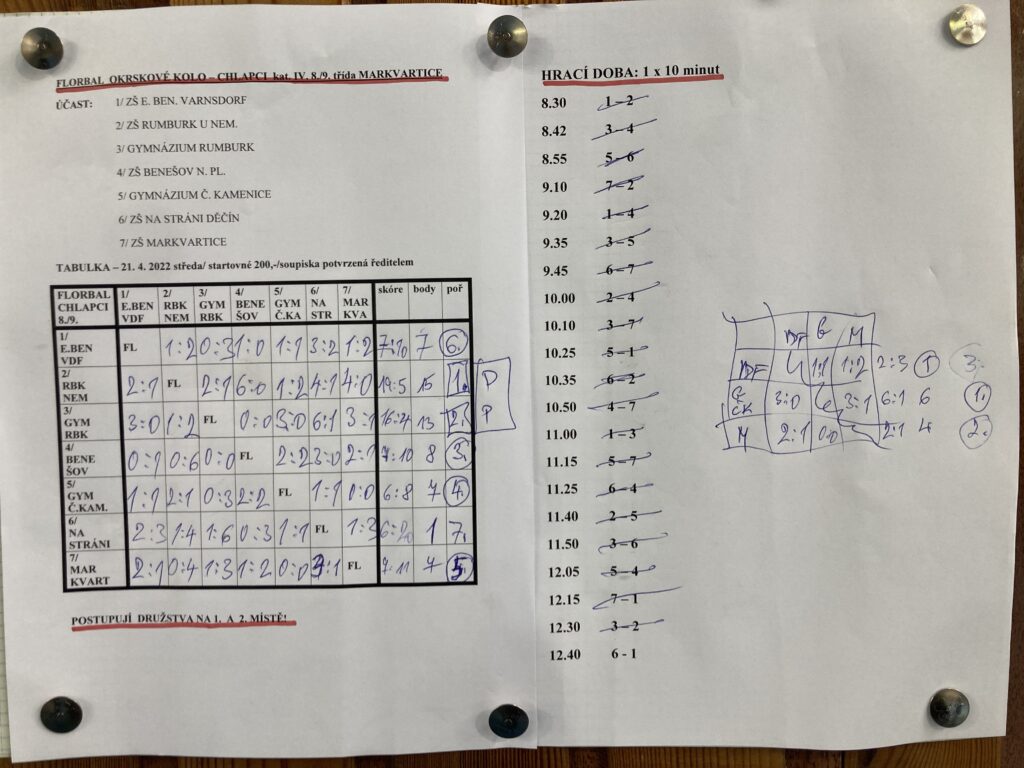 FLORBAL OKRSKOVÉ KOLO – CHLAPCI kat. IV. 8./9. třída MARKVARTICE
ÚČAST: 1/ ZŠ E. BEN. VARNSDORF
2/ ZŠ RUMBURK U NEM.
3/ GYMNÁZIUM RUMBURK
4/ ZŠ BENEŠOV N. PL.
5/ GYMNÁZIUM Č. KAMENICE
6/ ZŠ NA STRÁNI DĚČÍN
7/ ZŠ MARKVARTICE
TABULKA – 21. 4. 2022 středa/ startovné 200,-/soupiska potvrzená ředitelem
FLORBAL CHLAPCI 8./9. 1/ E.BEN VDF 2/ RBK NEM 3/ GYM RBK 4/ BENE ŠOV 5/ GYM Č.KA 6/ NA STR 7/ MAR KVA skóre body poř
1/ E.BEN VDF FL 1:2 0:3 1:0 1:1 3:2 1:2 7:10 7 6.
2/ RBK NEM 2:1 FL 2:1 6:0 1:2 4:1 4:0 19:5 15 1. P
3/ GYM RBK 3:0 1:2 FL 0:0 3:0 6:1 3:1 16:4 13 2. P
4/ BENE ŠOV 0:1 0:6 0:0 FL 2:2 3:0 2:1 7:10 8 3.
5/ GYM Č.KAM. 1:1 2:1 0:3 2:2 FL 1:1 0:0 6:8 7 4.
6/ NA STRÁNI 2:3 1:4 1:6 0:3 1:1 FL 1:3 1 7.
7/ MAR KVART 2:1 0:4 1:3 1:2 0:0 3:1 FL 7:11 7 5.
POSTUPUJÍ DRUŽSTVA NA 1. A 2. MÍSTĚ!
HRACÍ DOBA: 1 x 10 minut
8.30 1 – 2
8.42 3 – 4
8.55 5 – 6
9.10 7 – 2
9.20 1 – 4
9.35 3 – 5
9.45 6 – 7
10.00 2 – 4
10.10 3 – 7
10.25 5 – 1
10.35 6 – 2
10.50 4 – 7
11.00 1 – 3
11.15 5 – 7
11.25 6 – 4
11.40 2 – 5
11.50 3 – 6
12.05 5 – 4
12.15 7 – 1
12.30 3 – 2
12.40 6 - 1
M
1:1 1:2 2:3 1 3.
ČK 3:0 3:1 6:1 6 1.
M 2:1 0:0 2:1 4 2.